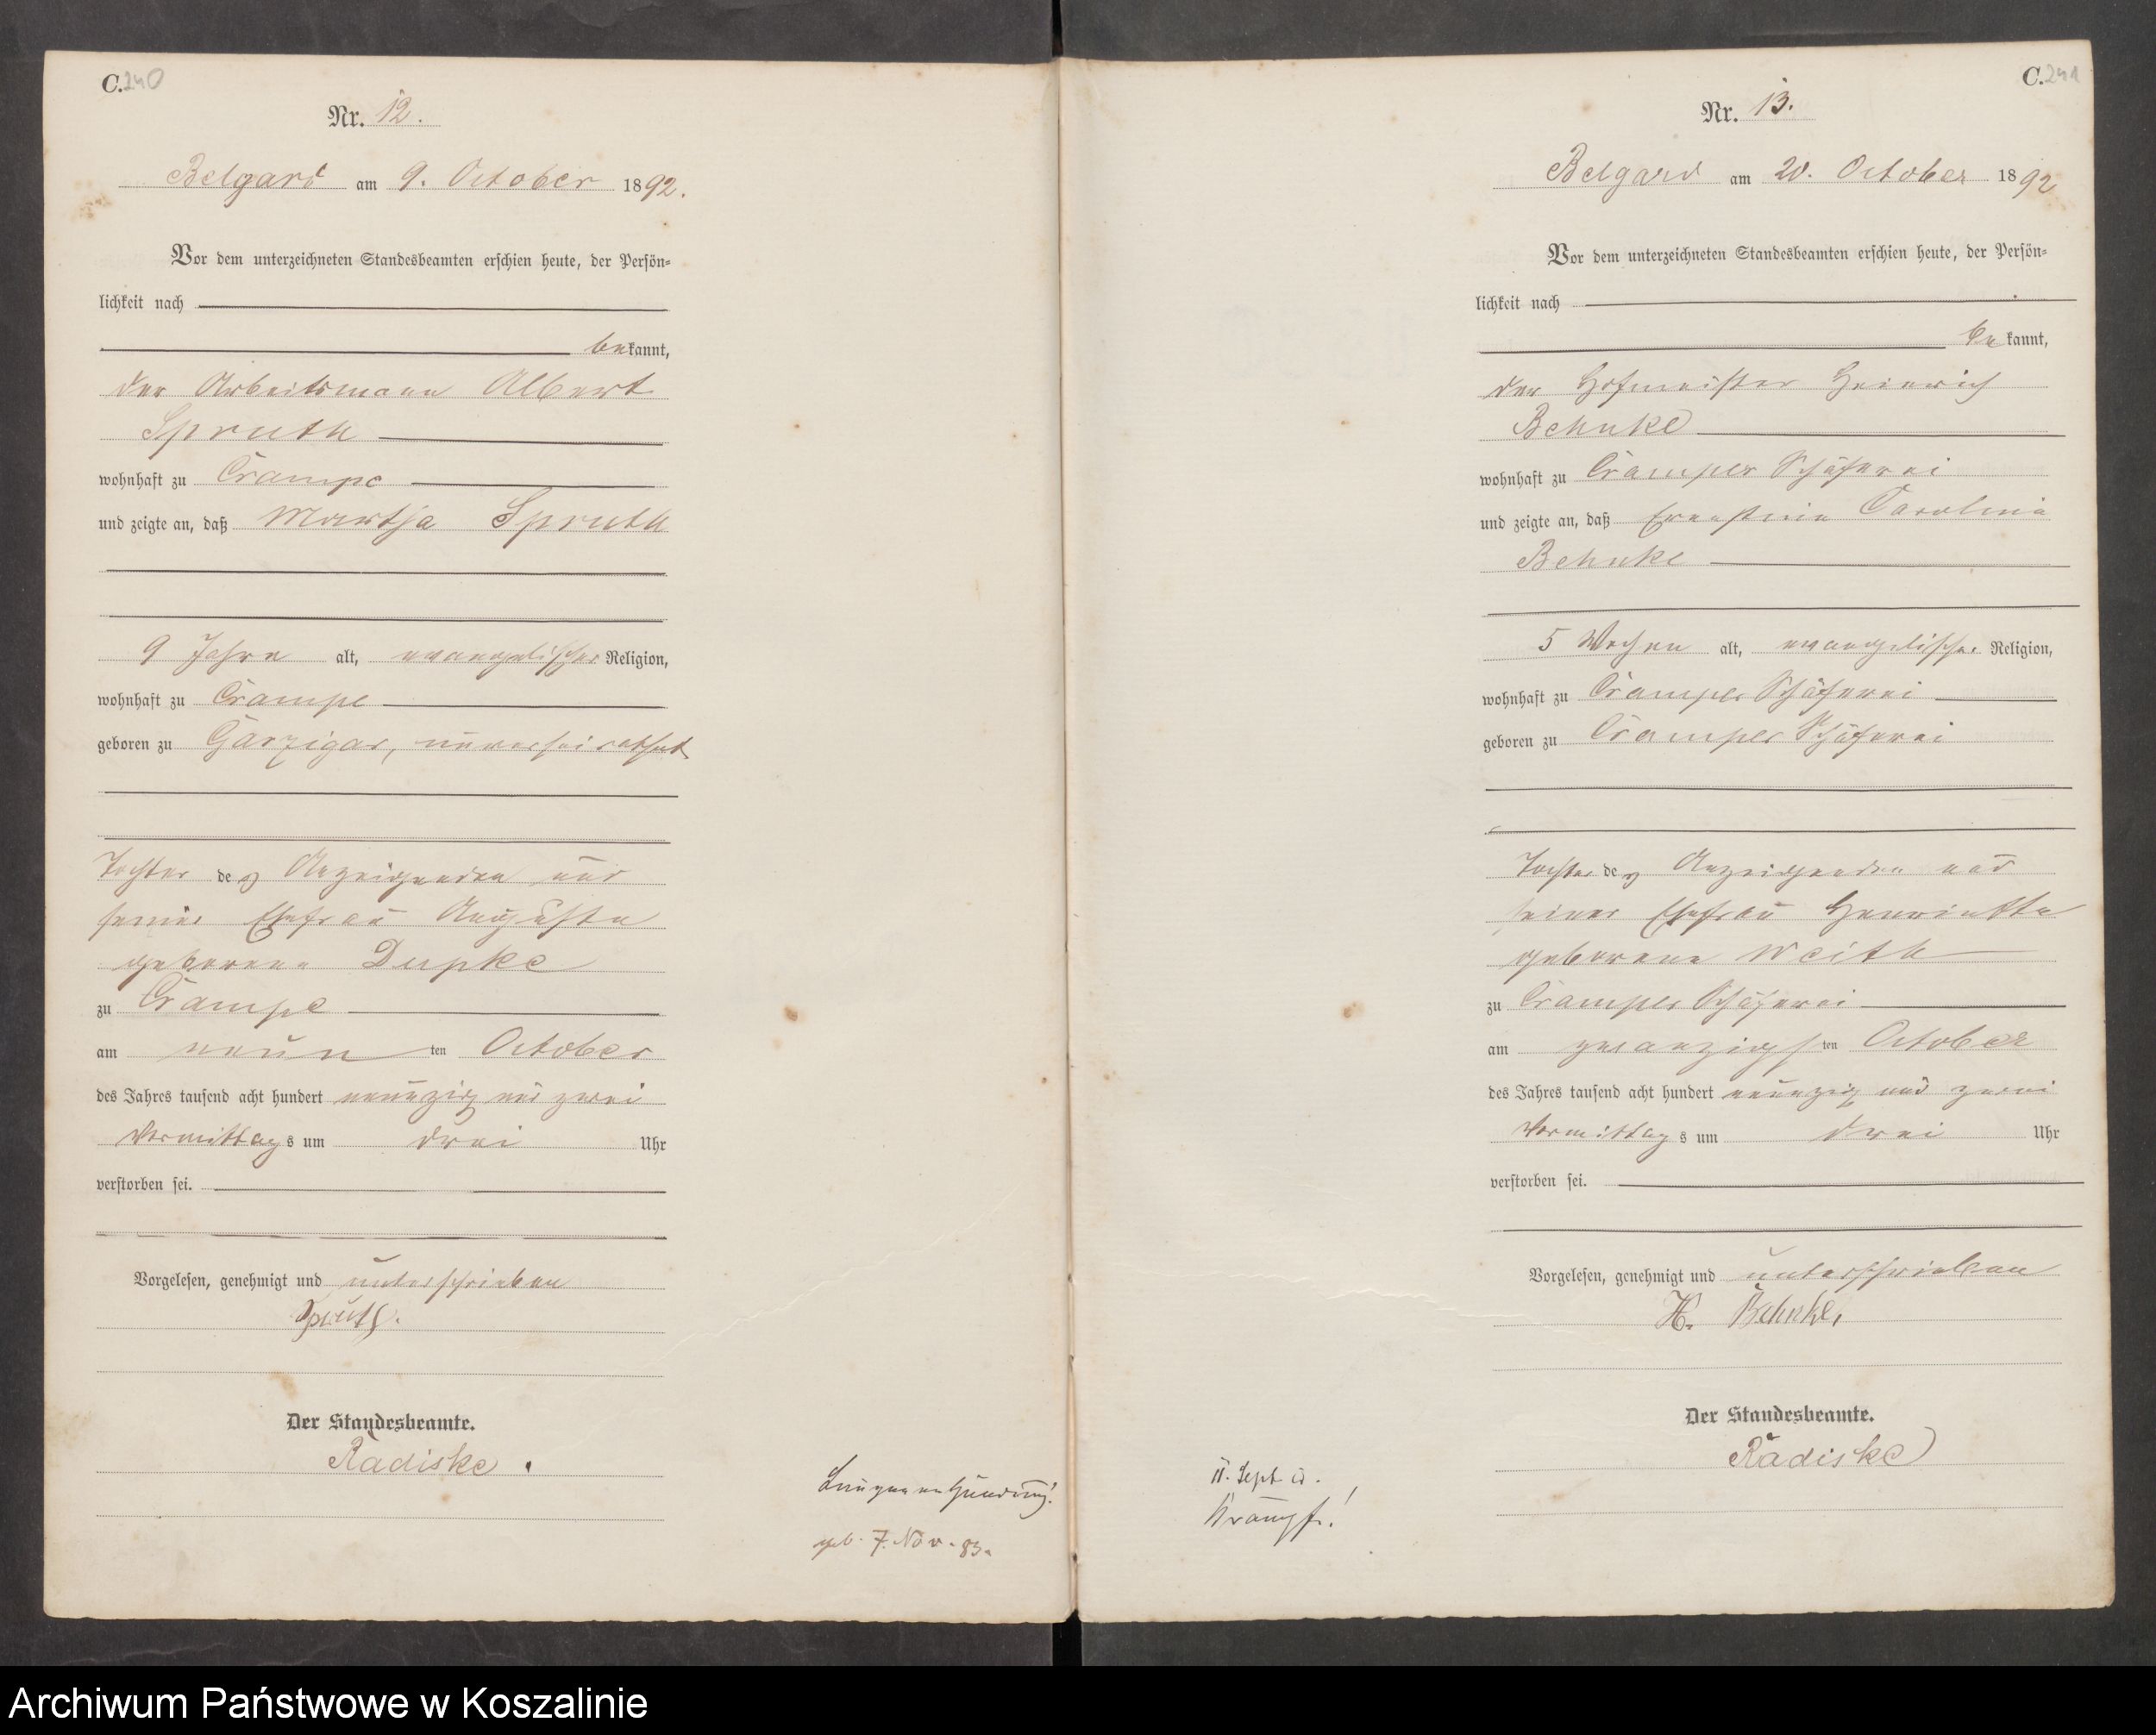 C. 240
Nr. 12.
Belgard am 9. October 1892.
Vor dem unterzeichneten Standesbeamten erschien heute, der Persön-
lichkeit nach
bekannt,
der Arbeitsmann Albert
Spruth
wohnhaft zu Crampe
und zeigte an, daß Martha Spruth
9 Jahre alt, evangelischer Religion,
wohnhaft zu Crampe
geboren zu Garzigar, unverheirathet
Tochter des Anzeigenden und
seiner Ehefrau Auguste
geborene Dupke
zu Crampe
am neun ten October
des Jahres tausend acht hundert neunzig und zwei
Vormittags um drei Uhr
verstorben sei.
Vorgelesen, genehmigt und unterschrieben
Spruth.
Der Standesbeamte.
Radiske.
Lungenentzündung!
geb. 7. Nov. 83.
C. 241
Nr. 13.
Belgard am 20. October 1892
Vor dem unterzeichneten Standesbeamten erschien heute, der Persön-
lichkeit nach
bekannt,
der Hofmeister Heinrich
Behnke
wohnhaft zu Cramper Schäferei
und zeigte an, daß Ernestine Caroline
Behnke
5 Wochen alt, evangelischer Religion,
wohnhaft zu Cramper Schäferei
geboren zu Cramper Schäferei
Tochter des Anzeigenden und
seiner Ehefrau Henriette
geborene Weith
zu Cramper Schäferei
am zwanzigs ten October
des Jahres tausend acht hundert neunzig und zwei
Vormittags um drei Uhr
verstorben sei.
Vorgelesen, genehmigt und unterschrieben
H. Behnke,
Der Standesbeamte.
Radiske
11. Sept.
Krämpfe!
Archiwum Państwowe w Koszalinie